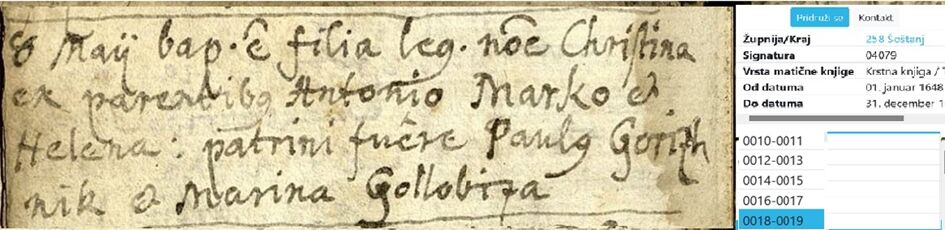 8 Maÿ bap. ẽ filia leg. nõe Christina
ex parentibꝫ Antonio Marko &
Helena: patrini fuẽre Paulꝫ Gorizh
nik & Marina Gollobiza
Pridruži se Kontakt
Župnija/Kraj 258 Šoštanj
Signatura 04079
Vrsta matične knjige Krstna knjiga /
Od datuma 01. januar 1648
Do datuma 31. december 1
0010-0011
0012-0013
0014-0015
0016-0017
0018-0019